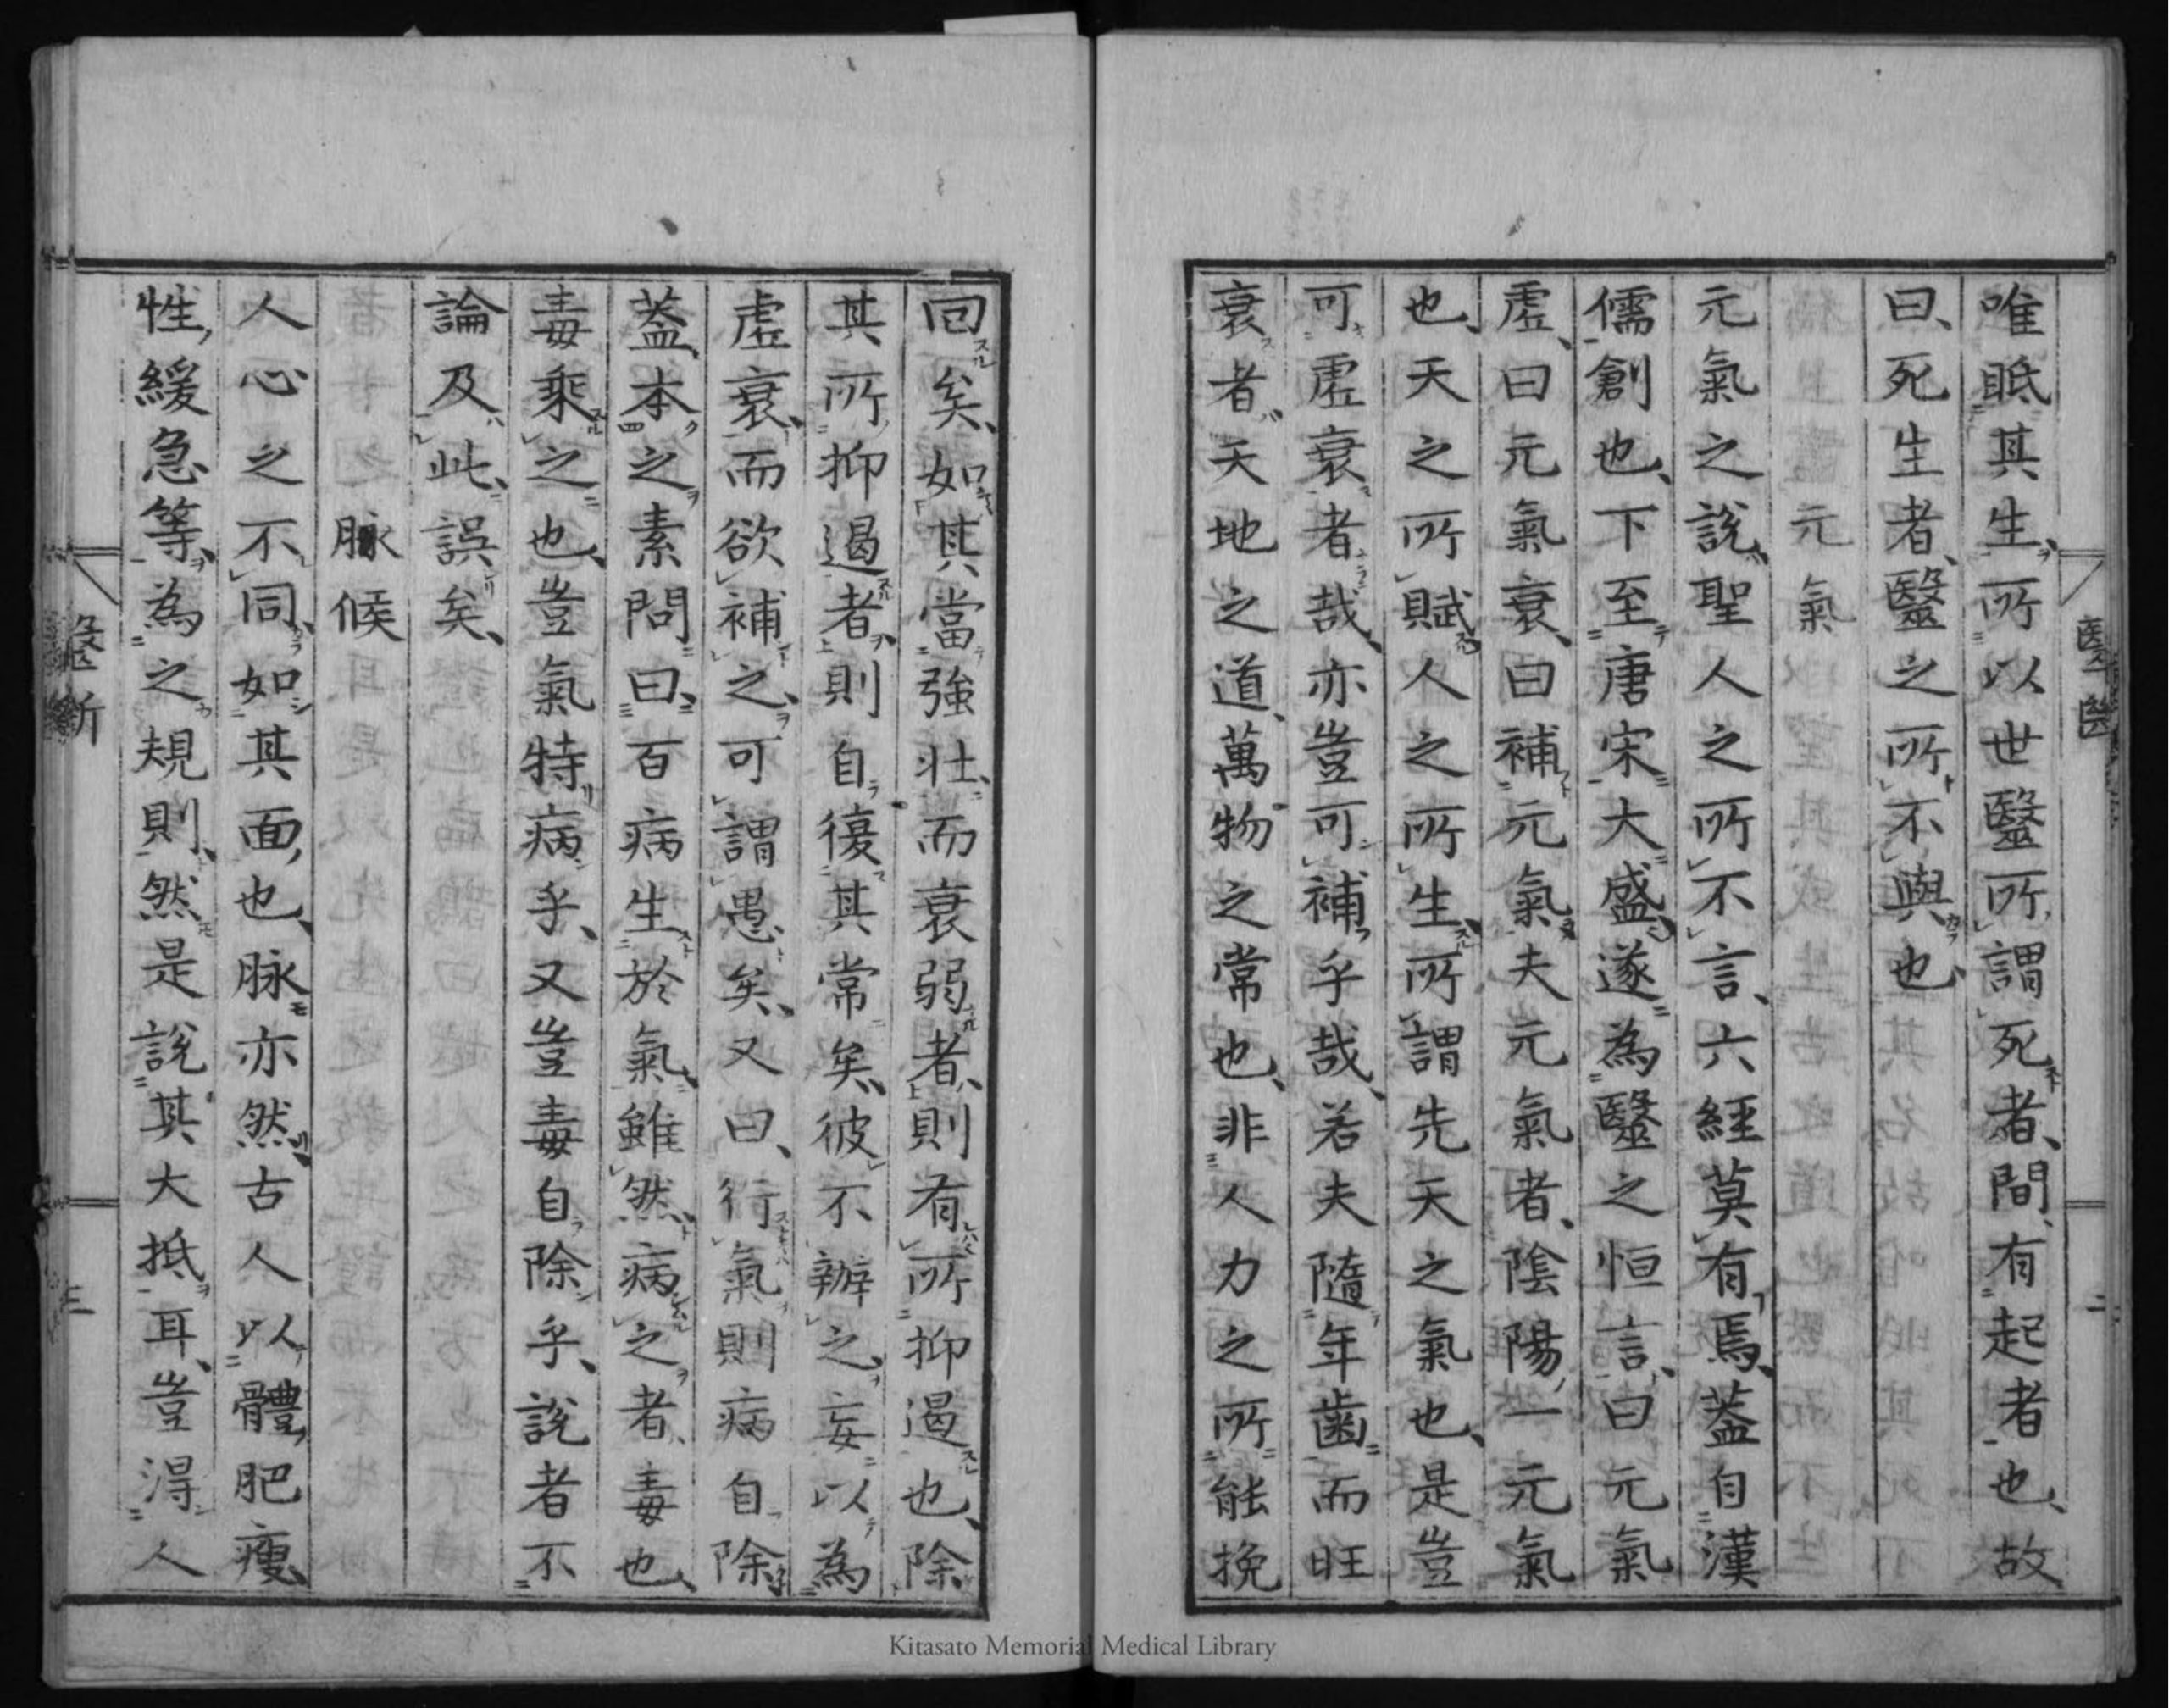 唯眡其生所以世醫所謂死者間有起者也故
曰死生者醫之所不與也
元氣
元氣之說聖人之所不言六經莫有焉蓋自漢
儒創也下至唐宋大盛遂為醫之恒言曰元氣
虛曰元氣衰曰補元氣夫元氣者陰陽一元氣
也天之所賦人之所生所謂先天之氣也是豈
可虛衰者哉亦豈可補乎哉若夫隨年齒而旺
衰者天地之道萬物之常也非人力之所能挽
回矣如其當強壯而衰弱者則有所抑遏也除
其所抑遏者則自復其常矣彼不辨之妄以為
虛衰而欲補之可謂愚矣又曰行氣則病自除
蓋本之素問曰百病生於氣雖然病之者毒也
毒乘之也豈氣特病乎又豈毒自除乎說者不
論及此誤矣
脉候
人心之不同如其面也脉亦然古人以體肥瘦
性緩急等為之規則然是說其大抵耳豈得人
醫斷
三
Kitasato Memorial Medical Library